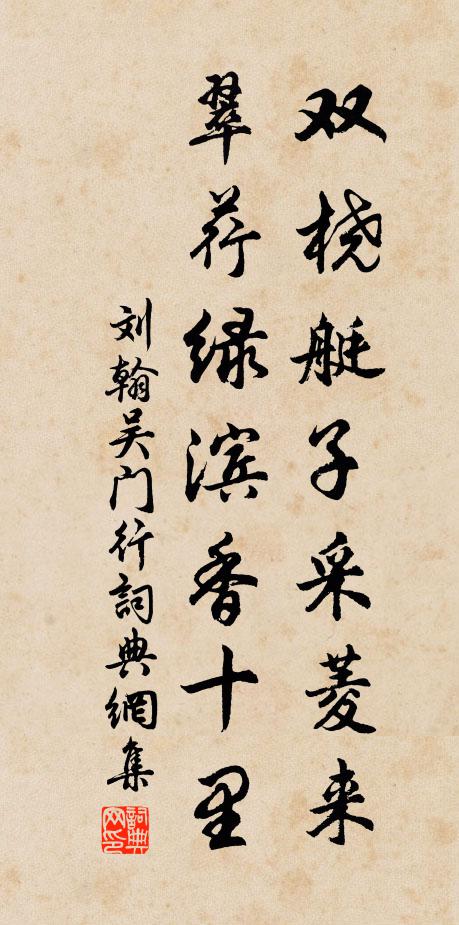 双桡艇子采菱来
翠荇绿滨香十里
刘翰吴门行詞典網集
詞典网印